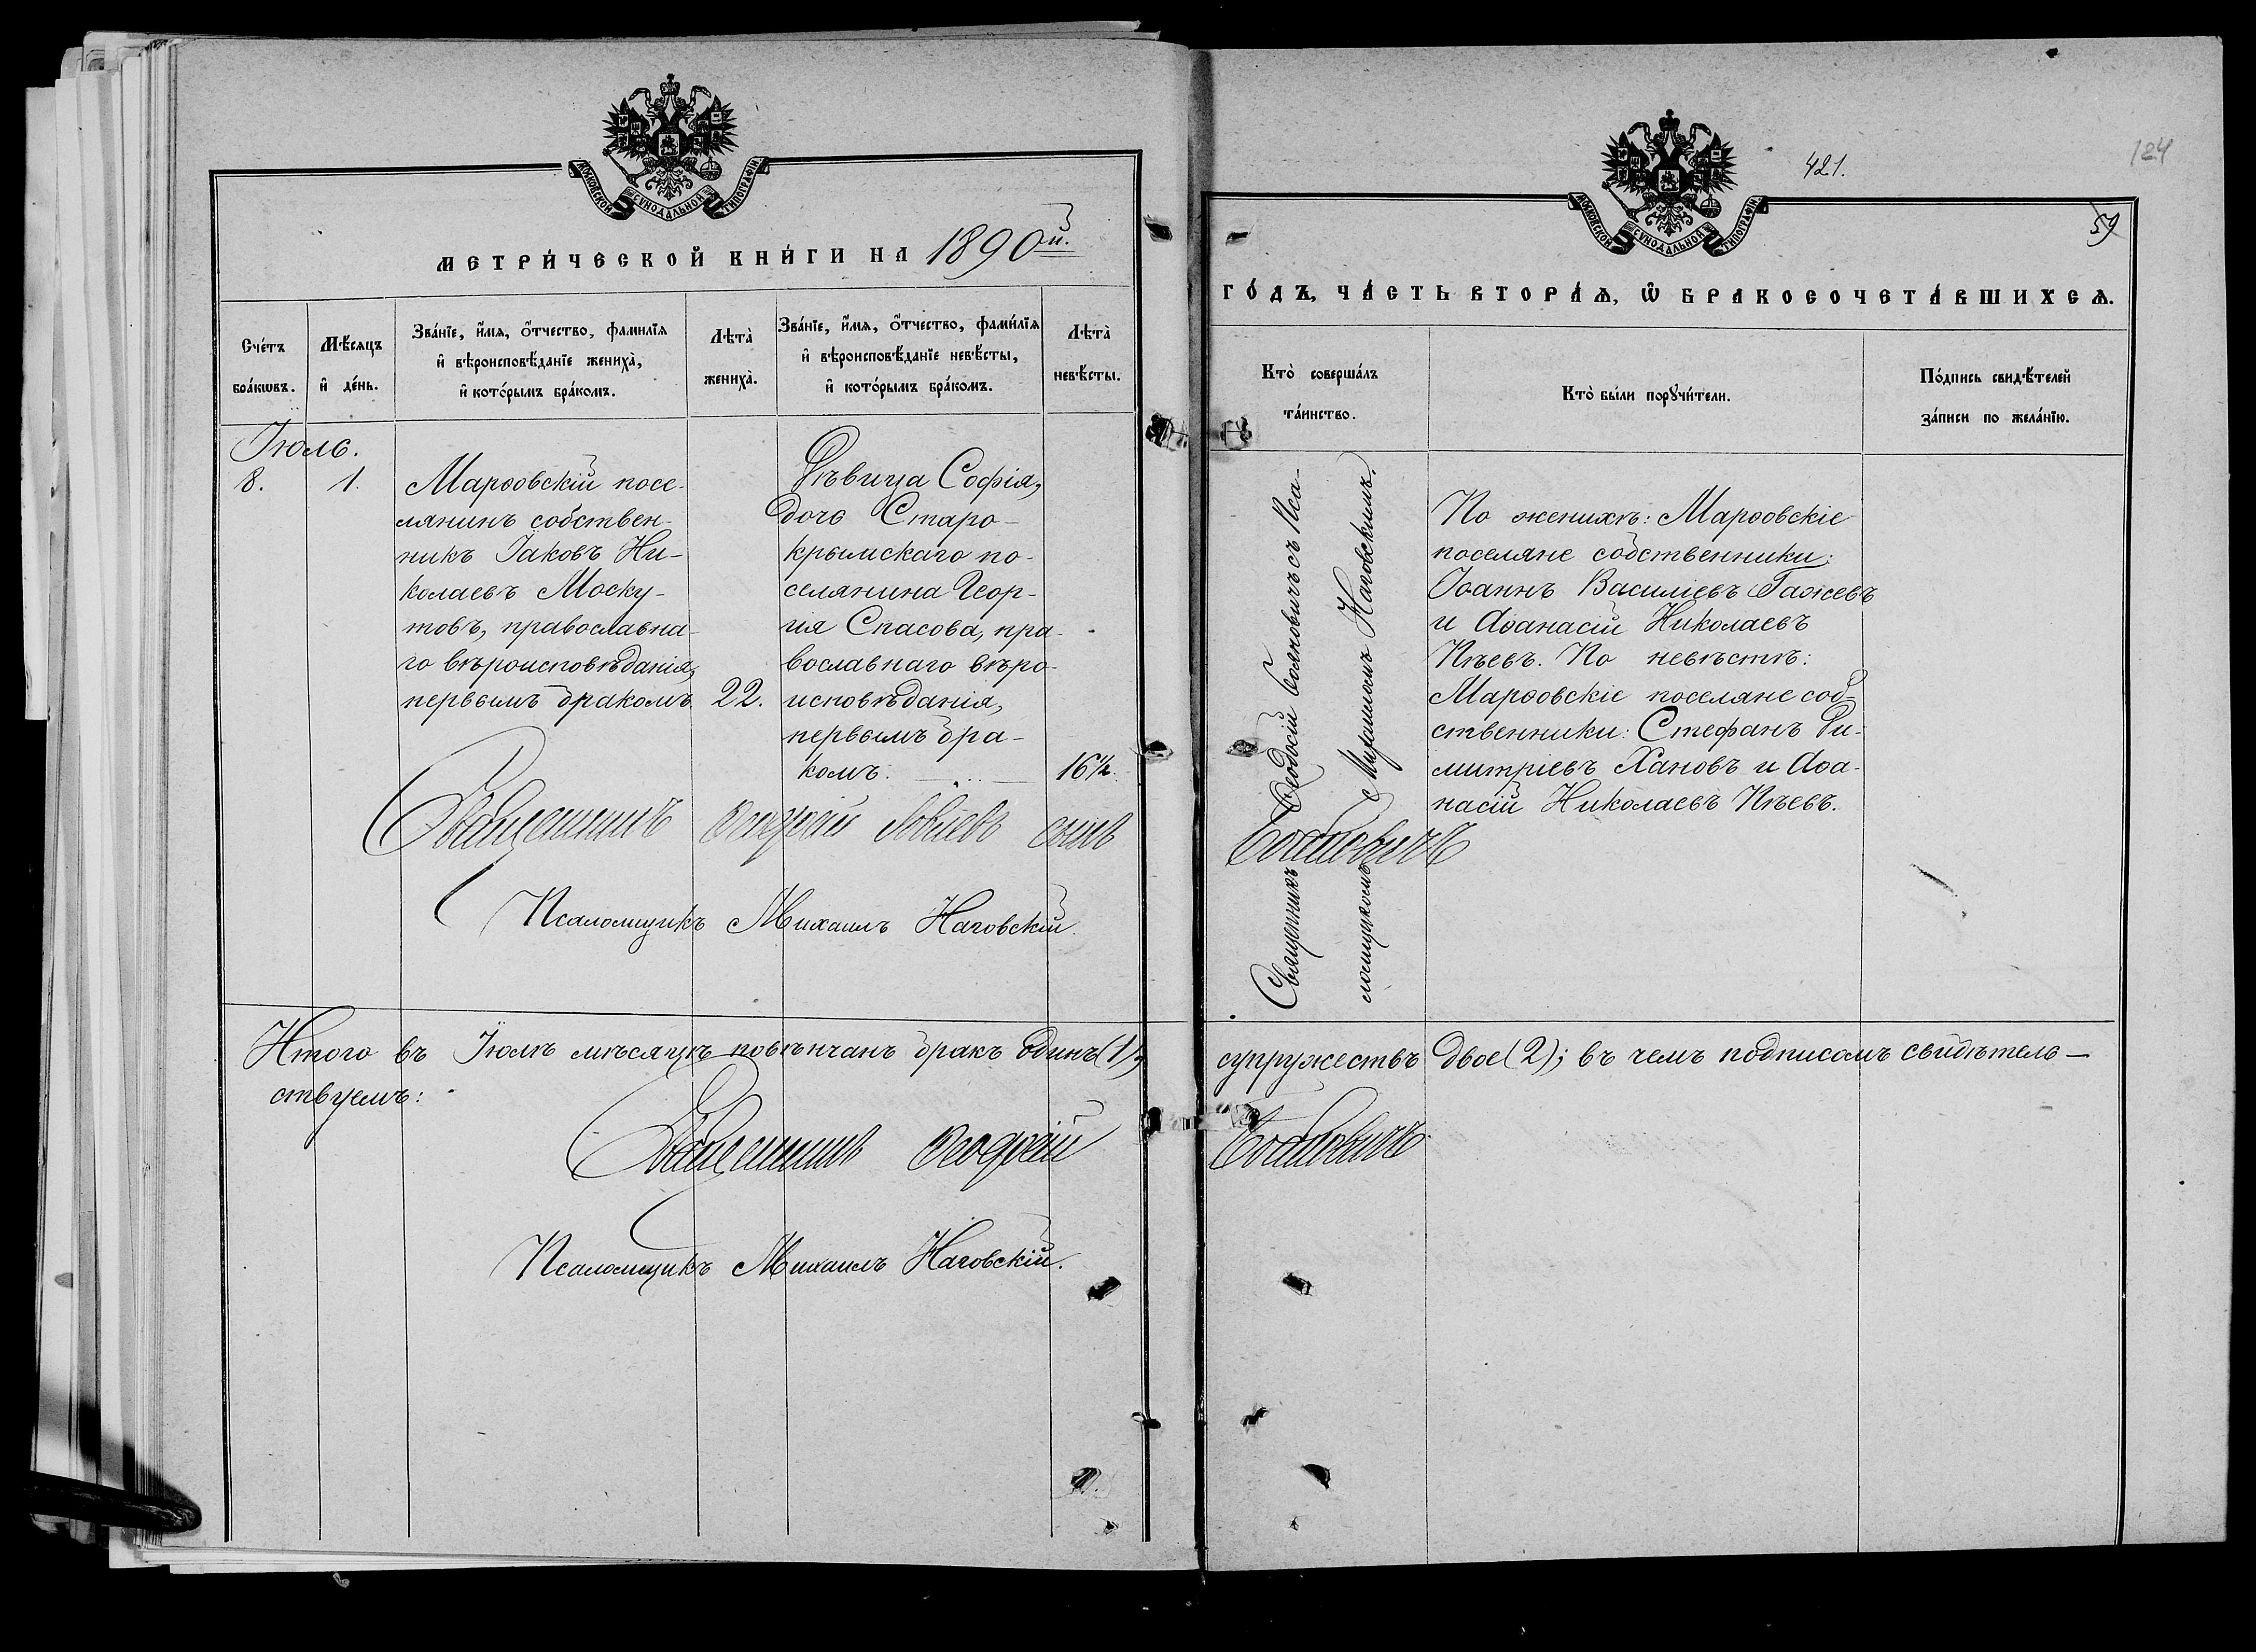 МОСКОВСКОЙ СѴНОДАЛЬНОЙ ТИПОГРАФІИ
МЕТРИ́ЧЕСКОЙ КНИ́ГИ НА 1890й.
Сче́тъ бра́кѡвъ.
Мѣ́сяцъ и҆ де́нь.
Зва́нїе, и҆́мѧ, ѻ҆́тчество, фамилїѧ
и҆ вѣроисповѣ́данїе жениха̀,
и҆ кото́рымъ бра́комъ.
Лѣта̀ жениха̀.
Зва́нїе, и҆́мѧ, ѻ҆́тчество, фами́лїѧ
и҆ вѣроисповѣ́данїе невѣ́сты,
и҆ кото́рымъ бра́комъ.
Лѣта̀ невѣ́сты.
Іюль.
8. 1.
Марѳовскій посе-
лянинъ собствен-
никъ Іаковъ Ни-
колаевъ Моску-
товъ, православна-
го вѣроисповѣданія,
первымъ бракомъ 22.
Дѣвица Софія,
дочь Старо-
крымскаго по-
селянина Геор-
гія Спасова, пра-
вославнаго вѣро-
исповѣданія,
первымъ бра-
комъ. 16½.
Священникъ
Псаломщикъ Михаилъ Наговскій.
Итого въ Іюлѣ мѣсяцѣ повѣнчанъ бракъ одинъ (1),
ствуемъ:
Священникъ Ѳеодосій
Псаломщикъ Михаилъ Наговскій.
421.
124
59
МОСКОВСКОЙ СѴНОДАЛЬНОЙ ТИПОГРАФІИ
ГО́ДЪ, ЧА́СТЬ ВТОРА́Ѧ, Ѡ҆ БРАКОСОЧЕТА́ВШИХСѦ.
Кто̀ соверша́лъ
та́инство.
Кто̀ бы́ли порꙋчи́тели.
По́дпись свидѣ́телей
за́писи по жела́нїю.
Священникъ Ѳеодосій Бояновичъ съ Пса-
ломщикомъ Михаиломъ Наговскимъ.
По женихѣ: Марѳовскіе
поселяне собственники:
Іоаннъ Василіевъ Гажевъ
и Аѳанасій Николаевъ
Пѣевъ. По невѣстѣ:
Марѳовскіе поселяне соб-
ственники: Стефанъ Ди-
митріевъ Хановъ и Аѳа-
насій Николаевъ Пѣевъ.
Бояновичъ
супружествъ двое (2); въ чемъ подписомъ свидѣтель-
Бояновичъ